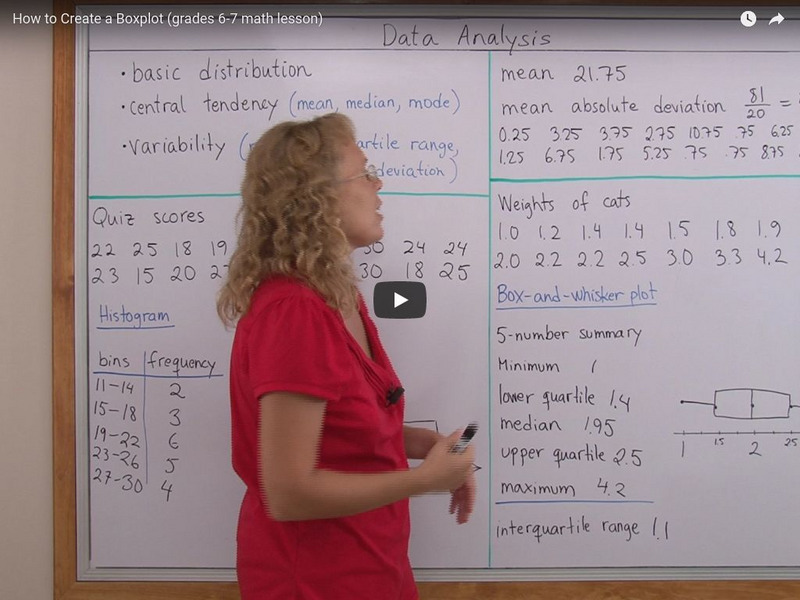 How to Create a Boxplot (grades 6-7 math lesson)
Data Analysis
• basic distribution
• central tendency (mean, median, mode)
• variability ( artile range,
deviation )
Quiz scores
22 25 18 19 30 24 24
23 15 20 30 18 25
Histogram
bins frequency
11-14 2
15-18 3
19-22 6
23-26 5
27-30 4
mean 21.75
mean absolute deviation 81/20 =
0.25 3.25 3.75 2.75 10.75 .75 6.25
1.25 6.75 1.75 5.25 .75 .75 8.75
Weights of cats
1.0 1.2 1.4 1.4 1.5 1.8 1.9
2.0 2.2 2.2 2.5 3.0 3.3 4.2
Box-and-whisker plot
5-number summary
Minimum 1
lower quartile 1.4
median 1.95
upper quartile 2.5
maximum 4.2
interquartile range 1.1
1 1.5 2 2.5